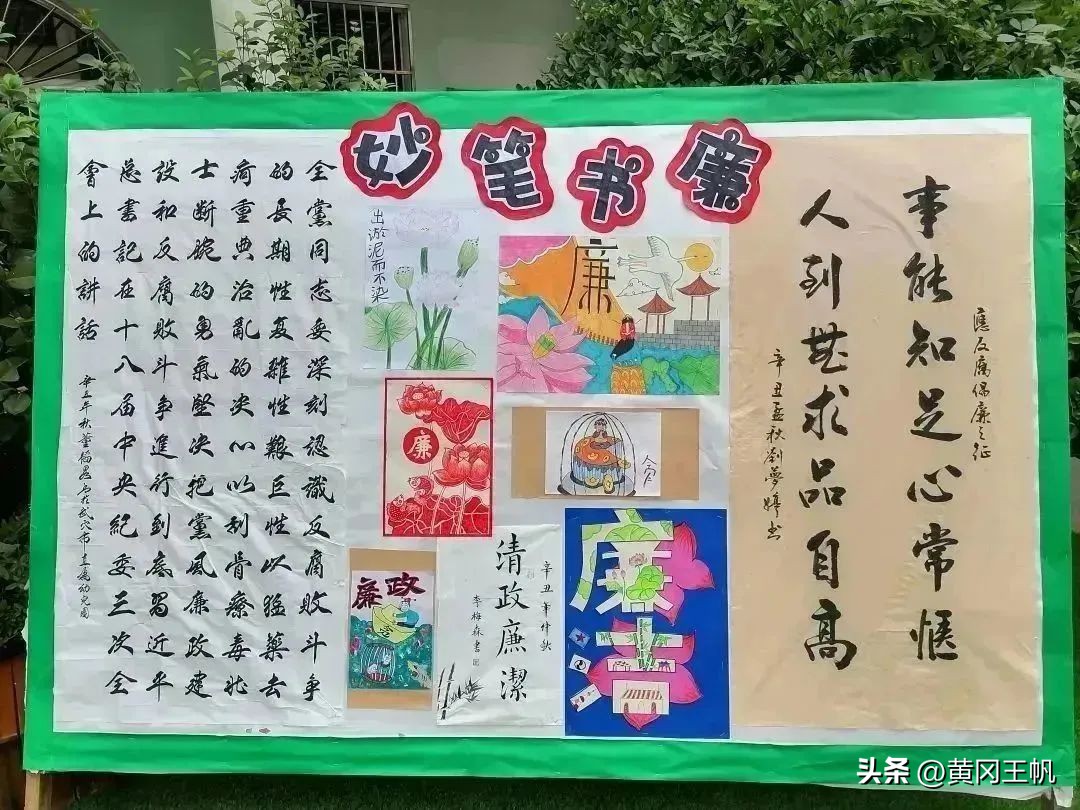 妙笔书廉
全黨同志要深刻認識反腐敗斗争
的長期性复雜性艱巨性以猛藥去
疴重典治亂的决心以刮骨療毒壮
士断腕的勇氣堅决把黨風廉政建
設和反腐敗斗争進行到底習近平
总書記在十八届中央紀委三次全
會上的讲話
辛丑年秋董韬书於武穴市直属幼儿园
出淤泥而不染
廉
廉
贪
廉政
清政廉潔
辛丑年仲秋
李梅森書
廉
應反腐保廉之征
事能知足心常惬
人到無求品自高
辛丑孟秋劉夢婷书
头条 @黄冈王帆